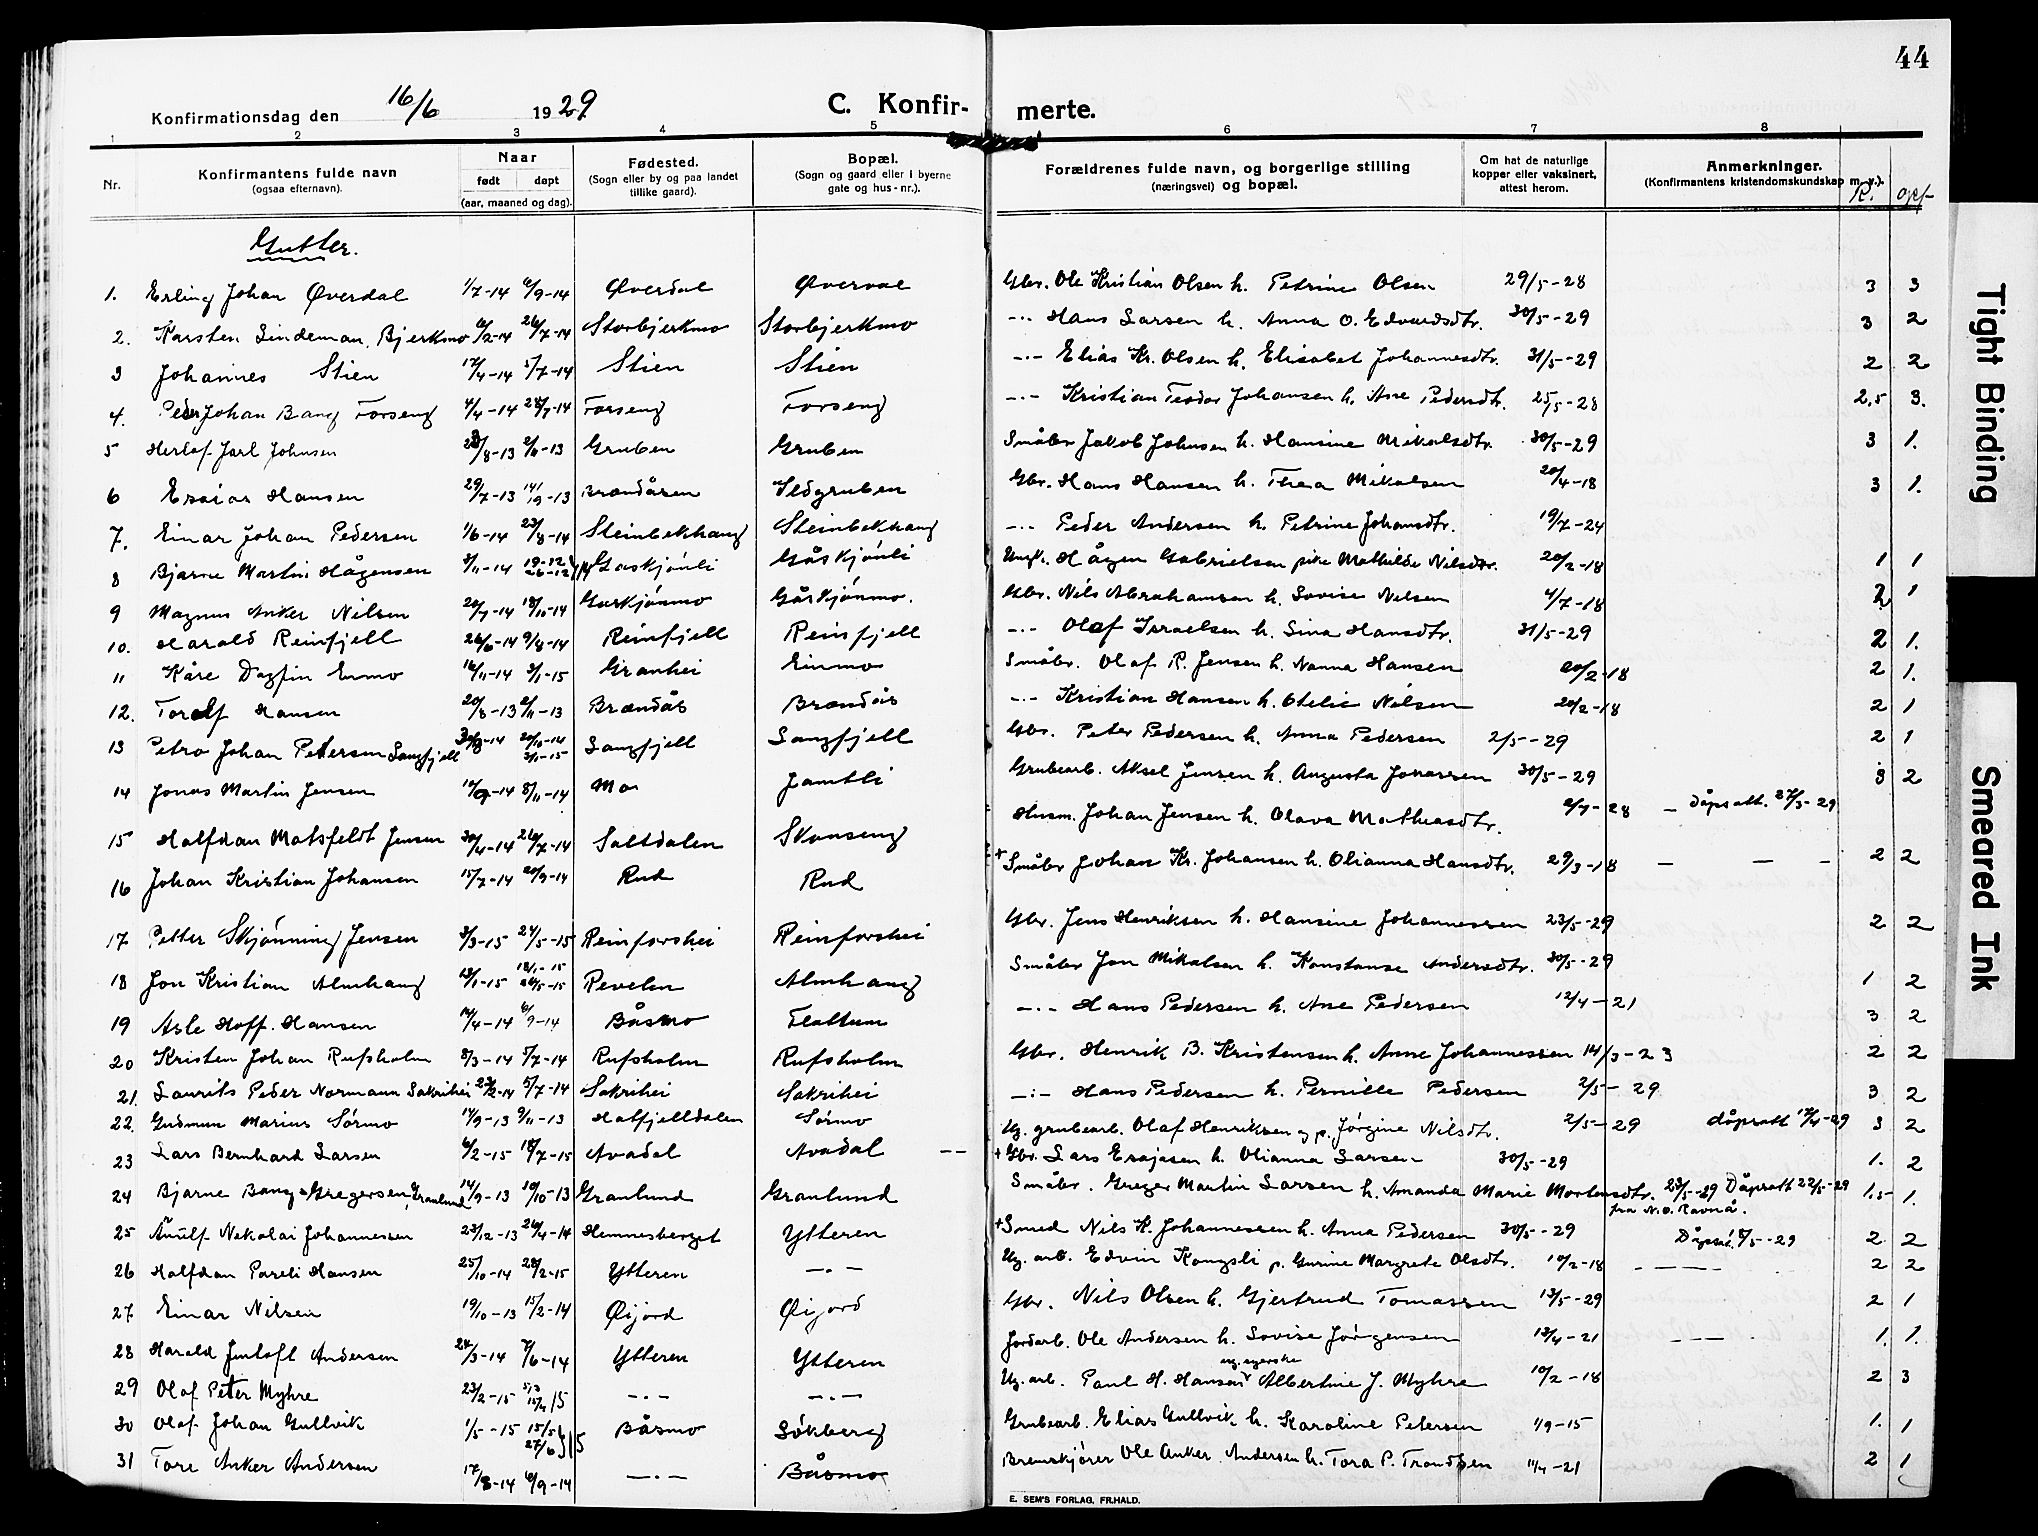 44
Konfirmationsdag den 16/6 1929 C. Konfir- merte.
1 2 3 4 5 6 7 8
Nr. Konfirmantens fulde navn (ogsaa efternavn). Naar født døpt (aar, maaned og dag). Fødested. (Sogn eller by og paa landet tillike gaard). Bopæl. (Sogn og gaard eller i byerne gate og hus-nr.). Forældrenes fulde navn, og borgerlige stilling (næringsvei) og bopæl. Om hat de naturlige kopper eller vaksinert, attest herom. Anmerkninger. (Konfirmantens kristendomskundskap m. v.). K. opf
Gutter.
1. Erling Johan Øverdal 1/7-14 6/9-14 Øverdal Øverdal Gbr. Ole Kristian Olsen h. Petrine Olsen 29/5-28 3 3
2. Karsten Lindeman Bjerkmo 6/2-14 26/7-14 Storbjerkmo Storbjerkmo -"- Hans Larsen h. Anna O. Edvardsdtr. 30/5-29 3 2
3 Johannes Stien 17/4-14 5/7-14 Stien Stien -"- Elias Kr. Olsen h. Elisabet Johannesdtr. 31/5-29 2 2
4. Peder Johan Bang Forseng 4/4-14 Forseng Forseng -"- Kristian Teodor Johansen h. Ane Pedersdtr. 25/5-28 2,5 3.
5 Herlof Jarl Johnsen 2/11-13 Gruben Gruben Småbr Jakob Johnsen h. Hansine Mikalsdtr. 30/5-29 3 1.
6 Esaias Hansen 29/7-13 14/9-13 Brændåsen Ildgruben Gbr. Hans Hansen h. Thea Mikalsen 20/4-18 3 1.
7. Einar Johan Pedersen 1/6-14 23/8-14 Steinbekhaug Steinbekhaug -"- Peder Andersen h. Petrine Johansdtr. 19/7-24
8 Bjarne Martin Hågensen 3/11-14 19-12 26-12 14 Gåskjønli Gåskjønli Ungk. Hågen Gabrielsen pike Mathilde Nilsdtr. 20/2-18 1 1
9 Magnus Anker Nilsen 20/7-14 18/10-14 Gåskjønmo Gåskjønmo. Gbr. Nils Abrahamsen h. Lovise Nilsen 4/7-18 2 1
10. Harald Reinfjell 26/6-14 9/8-14 Reinfjell Reinfjell -"- Olaf Israelsen h. Lina Hansdtr. 31/5-29 2 1.
11 Kåre Dagfin Enmo 16/11-14 3/1-15 Granhei Einmo Småbr. Olaf R. Jensen h. Nanna Hansen 20/2-18 2 1.
12. Toralf Hansen 20/8-13 2/11-13 Brændås Brændås -"- Kristian Hansen h. Otelie Nilsen 20/2-18 2 1
13 Petro Johan Petersen Langfjell 20/10-14 3/1-15 Langfjell Langfjell Gbr. Peter Pedersen h. Anna Pedersen 2/5-29 2 1
14 Jonas Martin Jensen 8/11-14 Mo Jamtli Grubearb. Aksel Jensen h. Augusta Jonassen 30/5-29 3 2
15 Halfdan Matsfeldt Jensen 30/4-14 26/7-14 Saltdalen Skonseng Husm. Johan Jensen h. Olava Matheasdtr. 2/7-28 - Dåpsatt. 27/3-29
16 Johan Kristian Johansen 15/7-14 20/9-14 Rud Rud + Småbr Johan Kr. Johansen h. Olianna Hansdtr. 29/3-18 - - - 2 2
17 Petter Skjønning Jensen 3/3-15 24/5-15 Reinforshei Reinforshei Gbr. Jens Henriksen h. Hansine Johannessen 23/5-29 2 2
18 Jon Kristian Almhaug 13/1-15 18/1-15 Revelen Almhaug Småbr Jon Mikalsen h. Konstanse Andersdtr. 30/5-29 1 2
19 Asle Hoff. Hansen 14/4-14 6/9-14 Båsmo Flattum -"- Hans Pedersen h. Ane Pedersen 12/4-21 3 2
20 Kristen Johan Rufsholm 8/3-14 5/7-14 Rufsholm Rufsholm Gbr. Henrik B. Kristensen h. Anne Johannessen 14/3-23 2 2
21. Laurits Peder Normann Sakrihei 23/2-14 5/7-14 Sakrihei Sakrihei -"- Hans Pedersen h. Pernille Pedersen 2/5-29 3 2
22. Gudmun Marius Sørmo 14/9-13 9/11-13 Hatfjelldalen Sørmo Ug. grubearb. Olaf Henriksen og p. Jørgine Nilsdtr. 2/5-29 dåpsatt 17/4-29 3 2
23 Lars Bernhard Larsen 6/2-15 18/7-15 Avadal Avadal -- + Gbr. Lars Esajasen h. Olianna Larsen 30/5-29 1. 2
24 Bjarne Bang Gregersen, Granlund 14/9-13 19/10-13 Granlund Granlund Småbr. Greger Martin Larsen h. Amanda Marie Mortensdtr. 23/5-29 Dåpsatt 22/5-29 1.5- 1.
fra N.O. Ravnå.
25 Arnulf Nekolai Johannessen 23/12-13 26/4-14 Hemnesberget Ytteren + Smed Nils K. Johannessen h. Anna Pedersen 30/5-29 Dåpsatt 5-29 2 2
26 Halfdan Pareli Hansen 25/10-14 28/2-15 Ytteren -"- Ug. arb. Edvin Kongsli p. Gurine Margrete Olsdtr. 10/2-18 - - - - 2 2
27 Einar Nilsen 19/10-13 15/2-14 Øijord Øijord Gbr. Nils Olsen h. Gjertrud Tomassen 13/5-29 2 1
28 Harald Jentoft Andersen 24/3-14 7/6-14 Ytteren Ytteren Jordarb. Ole Andersen h. Lovise Jørgensen 13/4-21 - - - 1. 1.
29 Olaf Peter Myhre 23/2-15 -"- -"- Ug. arb. Paul H. Hansen Albertine J. Myhre 10/2-18 2 3
30 Olaf Johan Gullvik 1/5-15 15/5 27/6 15 Båsmo Søkberg Grubearb. Elias Gullvik h. Karoline Petersen 1/9-15 1. 1
31 Tore Anker Andersen 17/8-14 6/9-14 -"- Båsmo Bremskjører Ole Anker Andersen h. Tora P. Trondsen 11/4-21 2 1
E. SEM'S FORLAG, FR.HALD.
Tight Binding
Smeared Ink